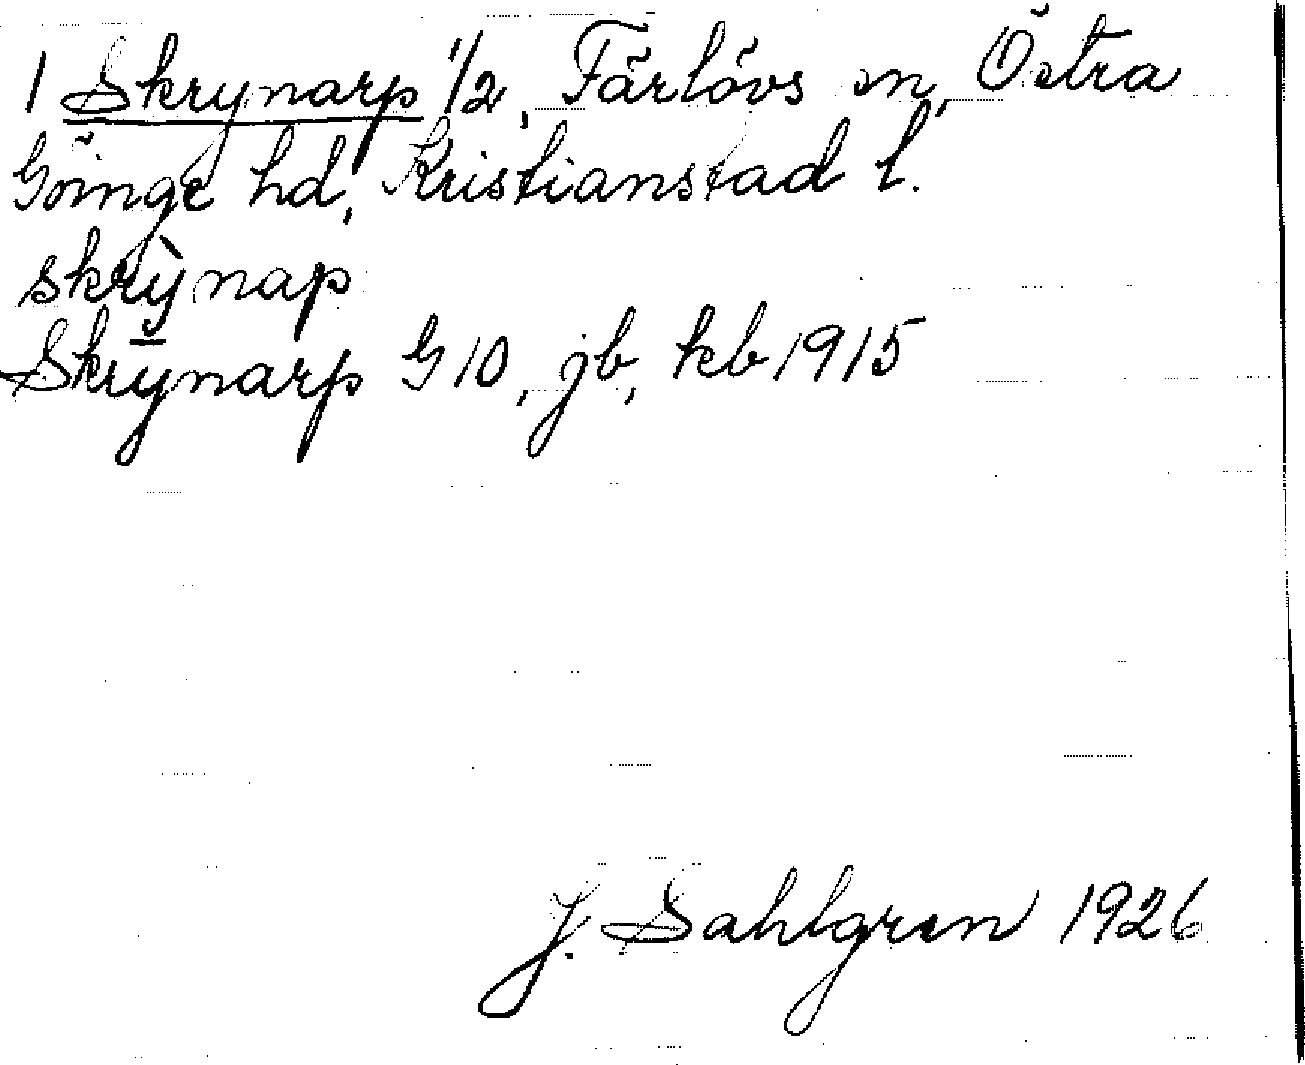 1 Skrynarp 1/2, Färlövs sn, Östra
Göinge hd, Kristianstad l.
skrỳ̱nap
Skrynarp G 10, jb, kb 1915
J. Sahlgren 1926